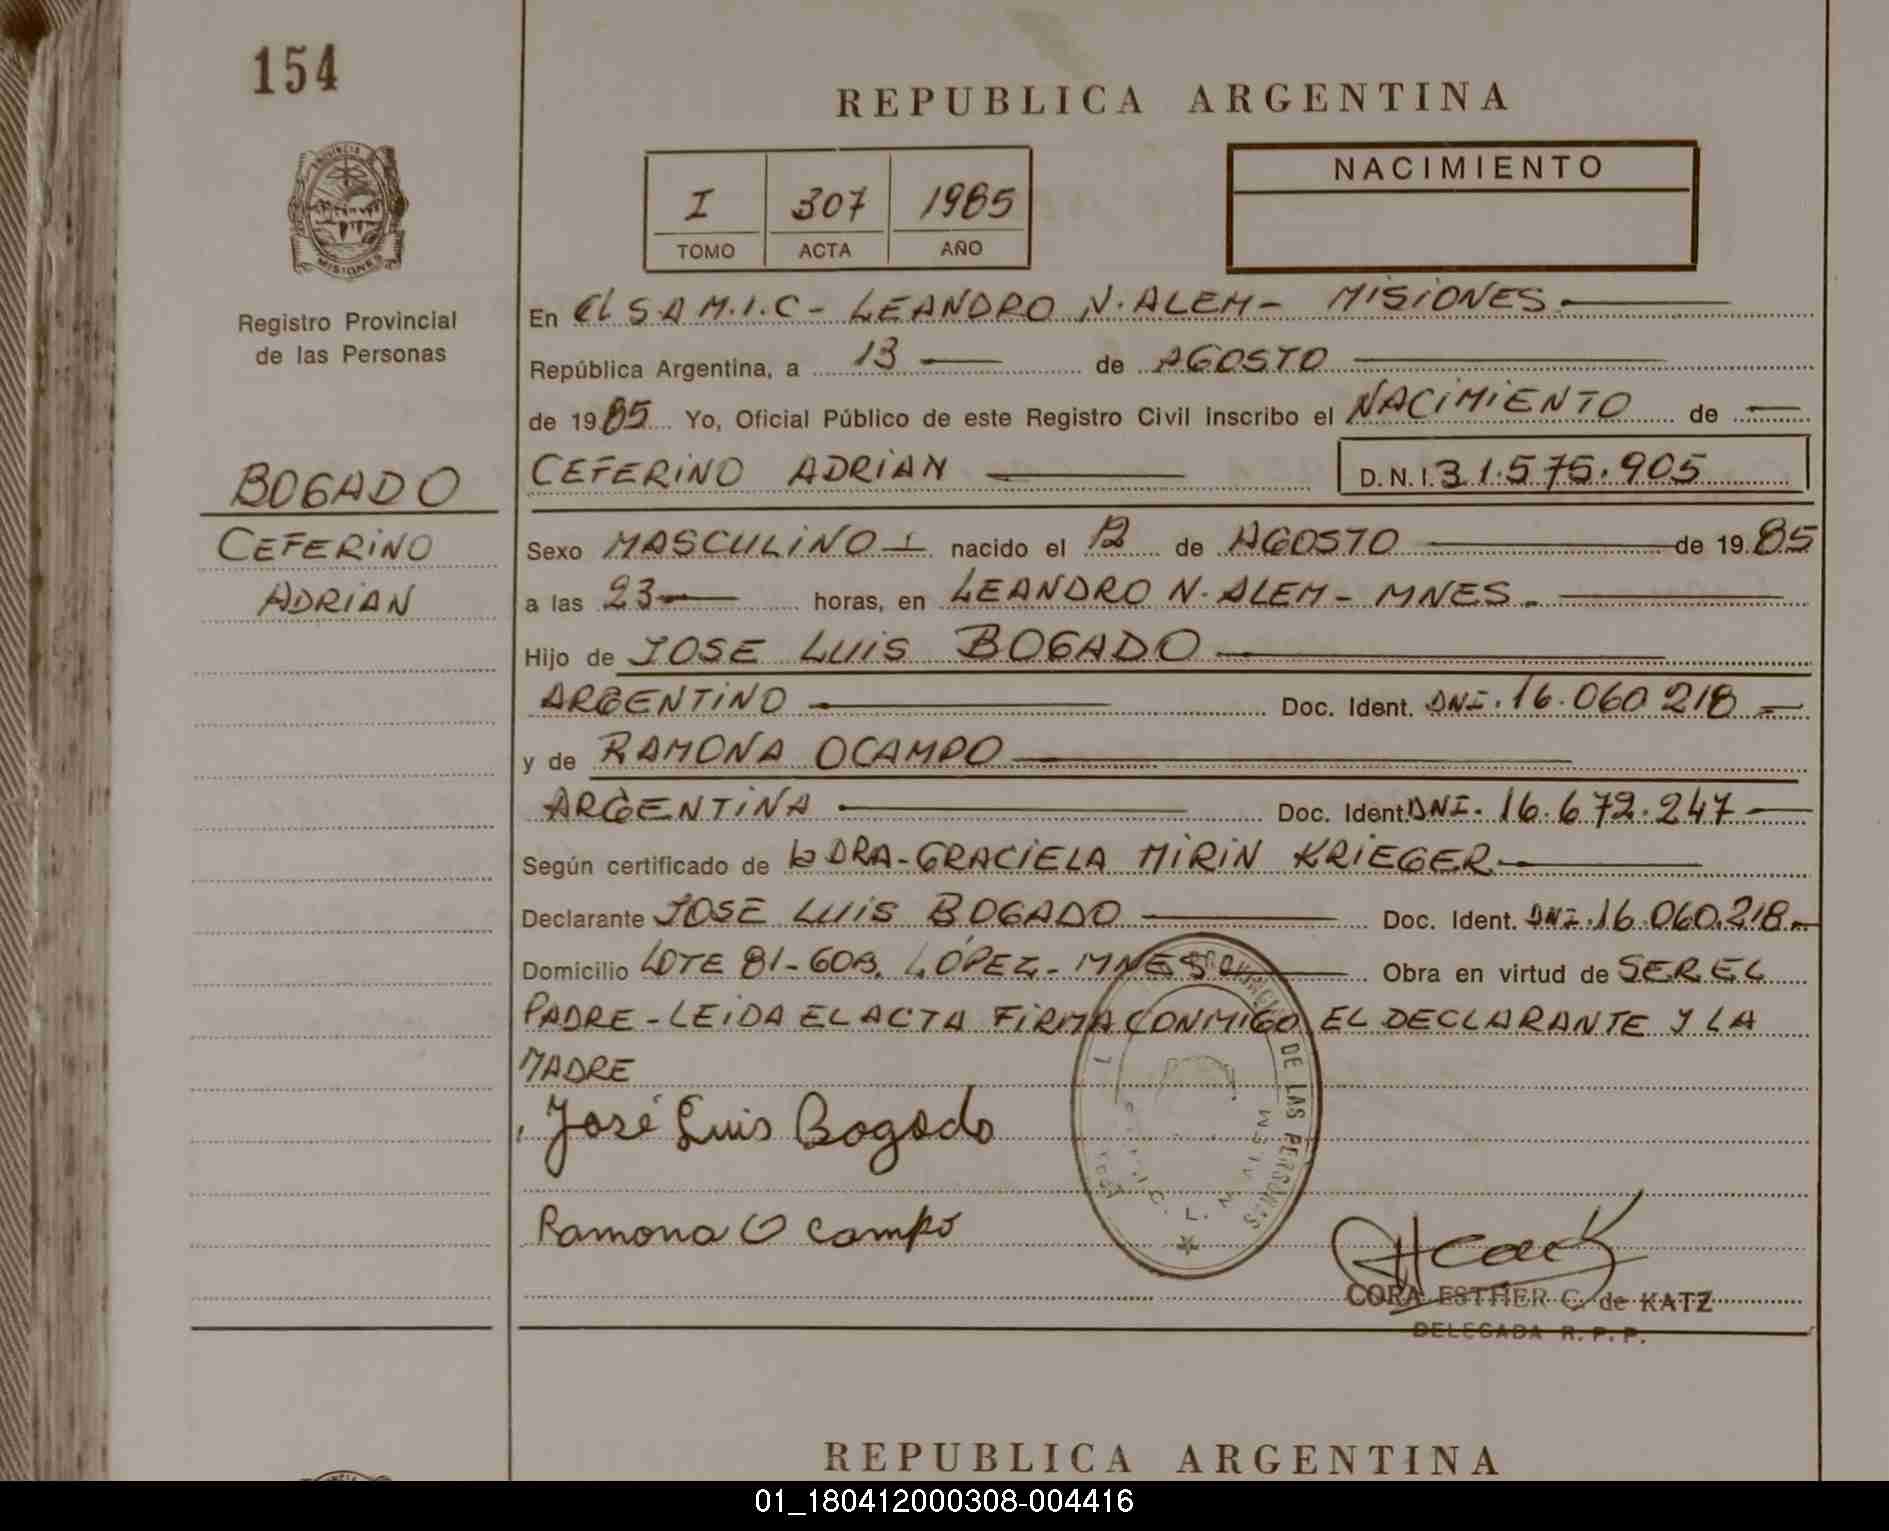 154
REPUBLICA ARGENTINA
PROVINCIA
MISIONES
Registro Provincial
de las Personas
I 307 1985
TOMO ACTA AÑO
NACIMIENTO
En EL S.A.M.I.C - LEANDRO N. ALEM - MISIONES.
República Argentina, a 13 de AGOSTO
de 1985 Yo, Oficial Público de este Registro Civil inscribo el NACIMIENTO de
BOGADO
CEFERINO
ADRIAN
CEFERINO ADRIAN D.N.I. 31.575.905
Sexo MASCULINO nacido el 12 de AGOSTO de 1985
a las 23 horas, en LEANDRO N. ALEM - MNES.
Hijo de JOSE LUIS BOGADO
ARGENTINO Doc. Ident. DNI. 16.060 218
y de RAMONA OCAMPO
ARGENTINA Doc. Ident. DNI. 16.672.247
Según certificado de DRA-GRACIELA MIRIN KRIEGER
Declarante JOSE LUIS BOGADO Doc. Ident. DNI. 16.060.218
Domicilio LOTE 81-GOB. LÓPEZ - MNES Obra en virtud de SER EL
PADRE - LEIDA EL ACTA FIRMA CONMIGO EL DECLARANTE Y LA
MADRE
José Luis Bogado
Ramona Ocampo
DE LAS PERSONAS
CORA ESTHER C. de KATZ
DELEGADA R. P. P.
REPUBLICA ARGENTINA
01_180412000308-004416